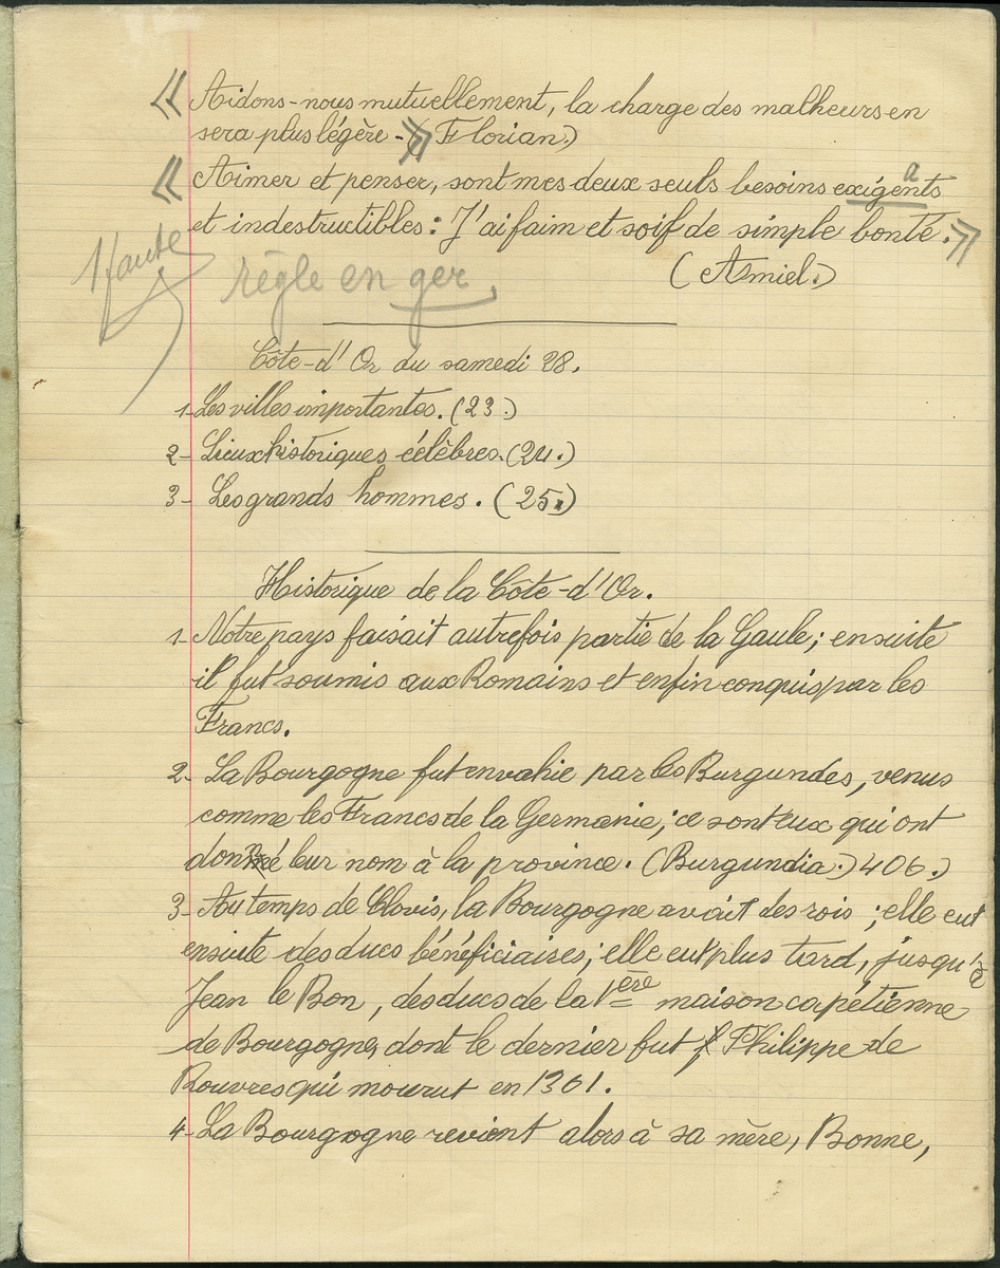 « Aidons-nous mutuellement, la charge des malheurs en
sera plus légère - » ( Florian.)
« Aimer et penser, sont mes deux seuls besoins exigeants
et indestructibles : J'ai faim et soif de simple bonté. »
( Amiel.)
1 faute
règle en ger
Côte-d'Or du samedi 28.
1- Les villes importantes. (23.)
2- Lieux historiques célèbres. (24.)
3- Les grands hommes. (25.)
Historique de la Côte-d'Or.
1- Notre pays faisait autrefois partie de la Gaule ; ensuite
il fut soumis aux Romains et enfin conquis par les
Francs.
2- La Bourgogne fut envahie par les Burgundes, venus
comme les Francs de la Germanie ; ce sont eux qui ont
donné leur nom à la province. (Burgundia.) 406.)
3- Au temps de Clovis, la Bourgogne avait des rois ; elle eut
ensuite des ducs bénéficiaires ; elle eut plus tard, jusqu'à
Jean le Bon, des ducs de la 1ère maison capétienne
de Bourgogne, dont le dernier fut Philippe de
Rouvres qui mourut en 1361.
4- La Bourgogne revient alors à sa mère, Bonne,